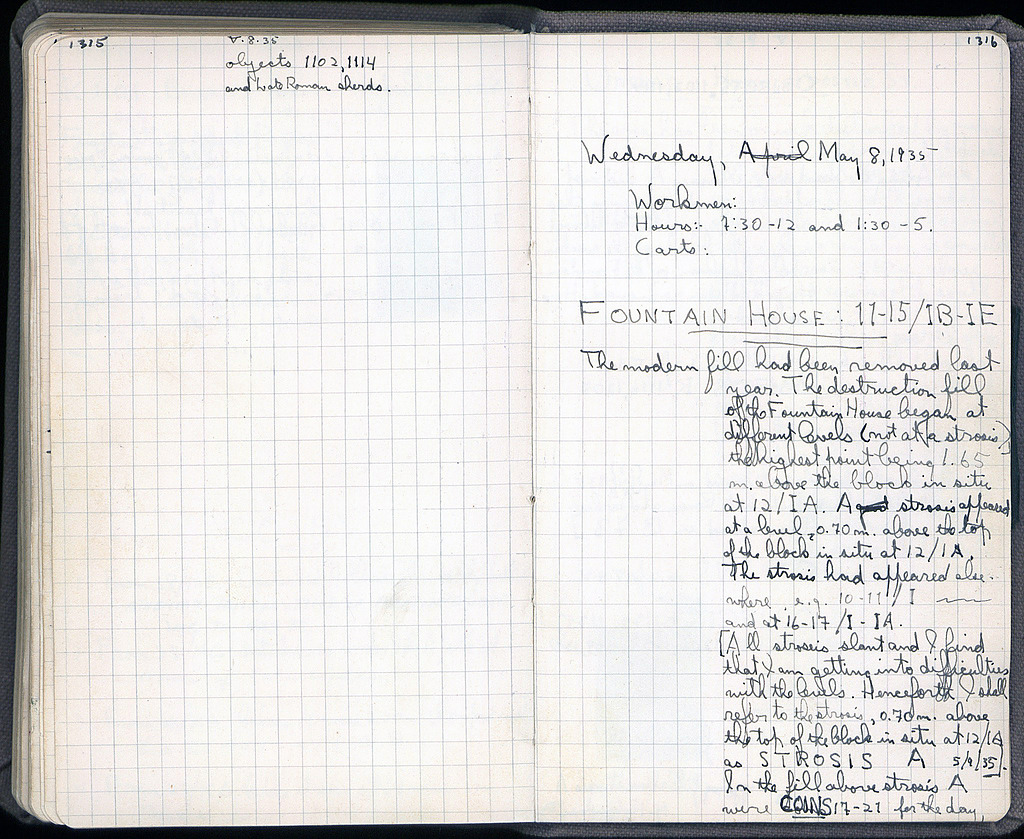 1315
V.8.35
objects 1102, 1114
and Late Roman sherds.
1316
Wednesday, April May 8, 1935
Workmen:
Hours:- 7:30-12 and 1:30-5.
Carts:
FOUNTAIN HOUSE: 11-15/IB-IE
The modern fill had been removed last
year. The destruction fill
of the Fountain House began at
different levels (not at a strosis)
the highest point being 1.65
m. above the block in situ
at 12/IA. A strosis appeared
at a level, 0.70 m. above the top
of the block in situ at 12/IA.
The strosis had appeared else-
where, e.g. 10-11/I
and at 16-17/I-IA.
[All stroseis slant and I find
that I am getting into difficulties
with the levels. Henceforth I shall
refer to the strosis, 0.70m. above
the top of the block in situ at 12/IA
as STROSIS A 5/9/35].
In the fill above strosis A
were COINS 17-21 for the day,